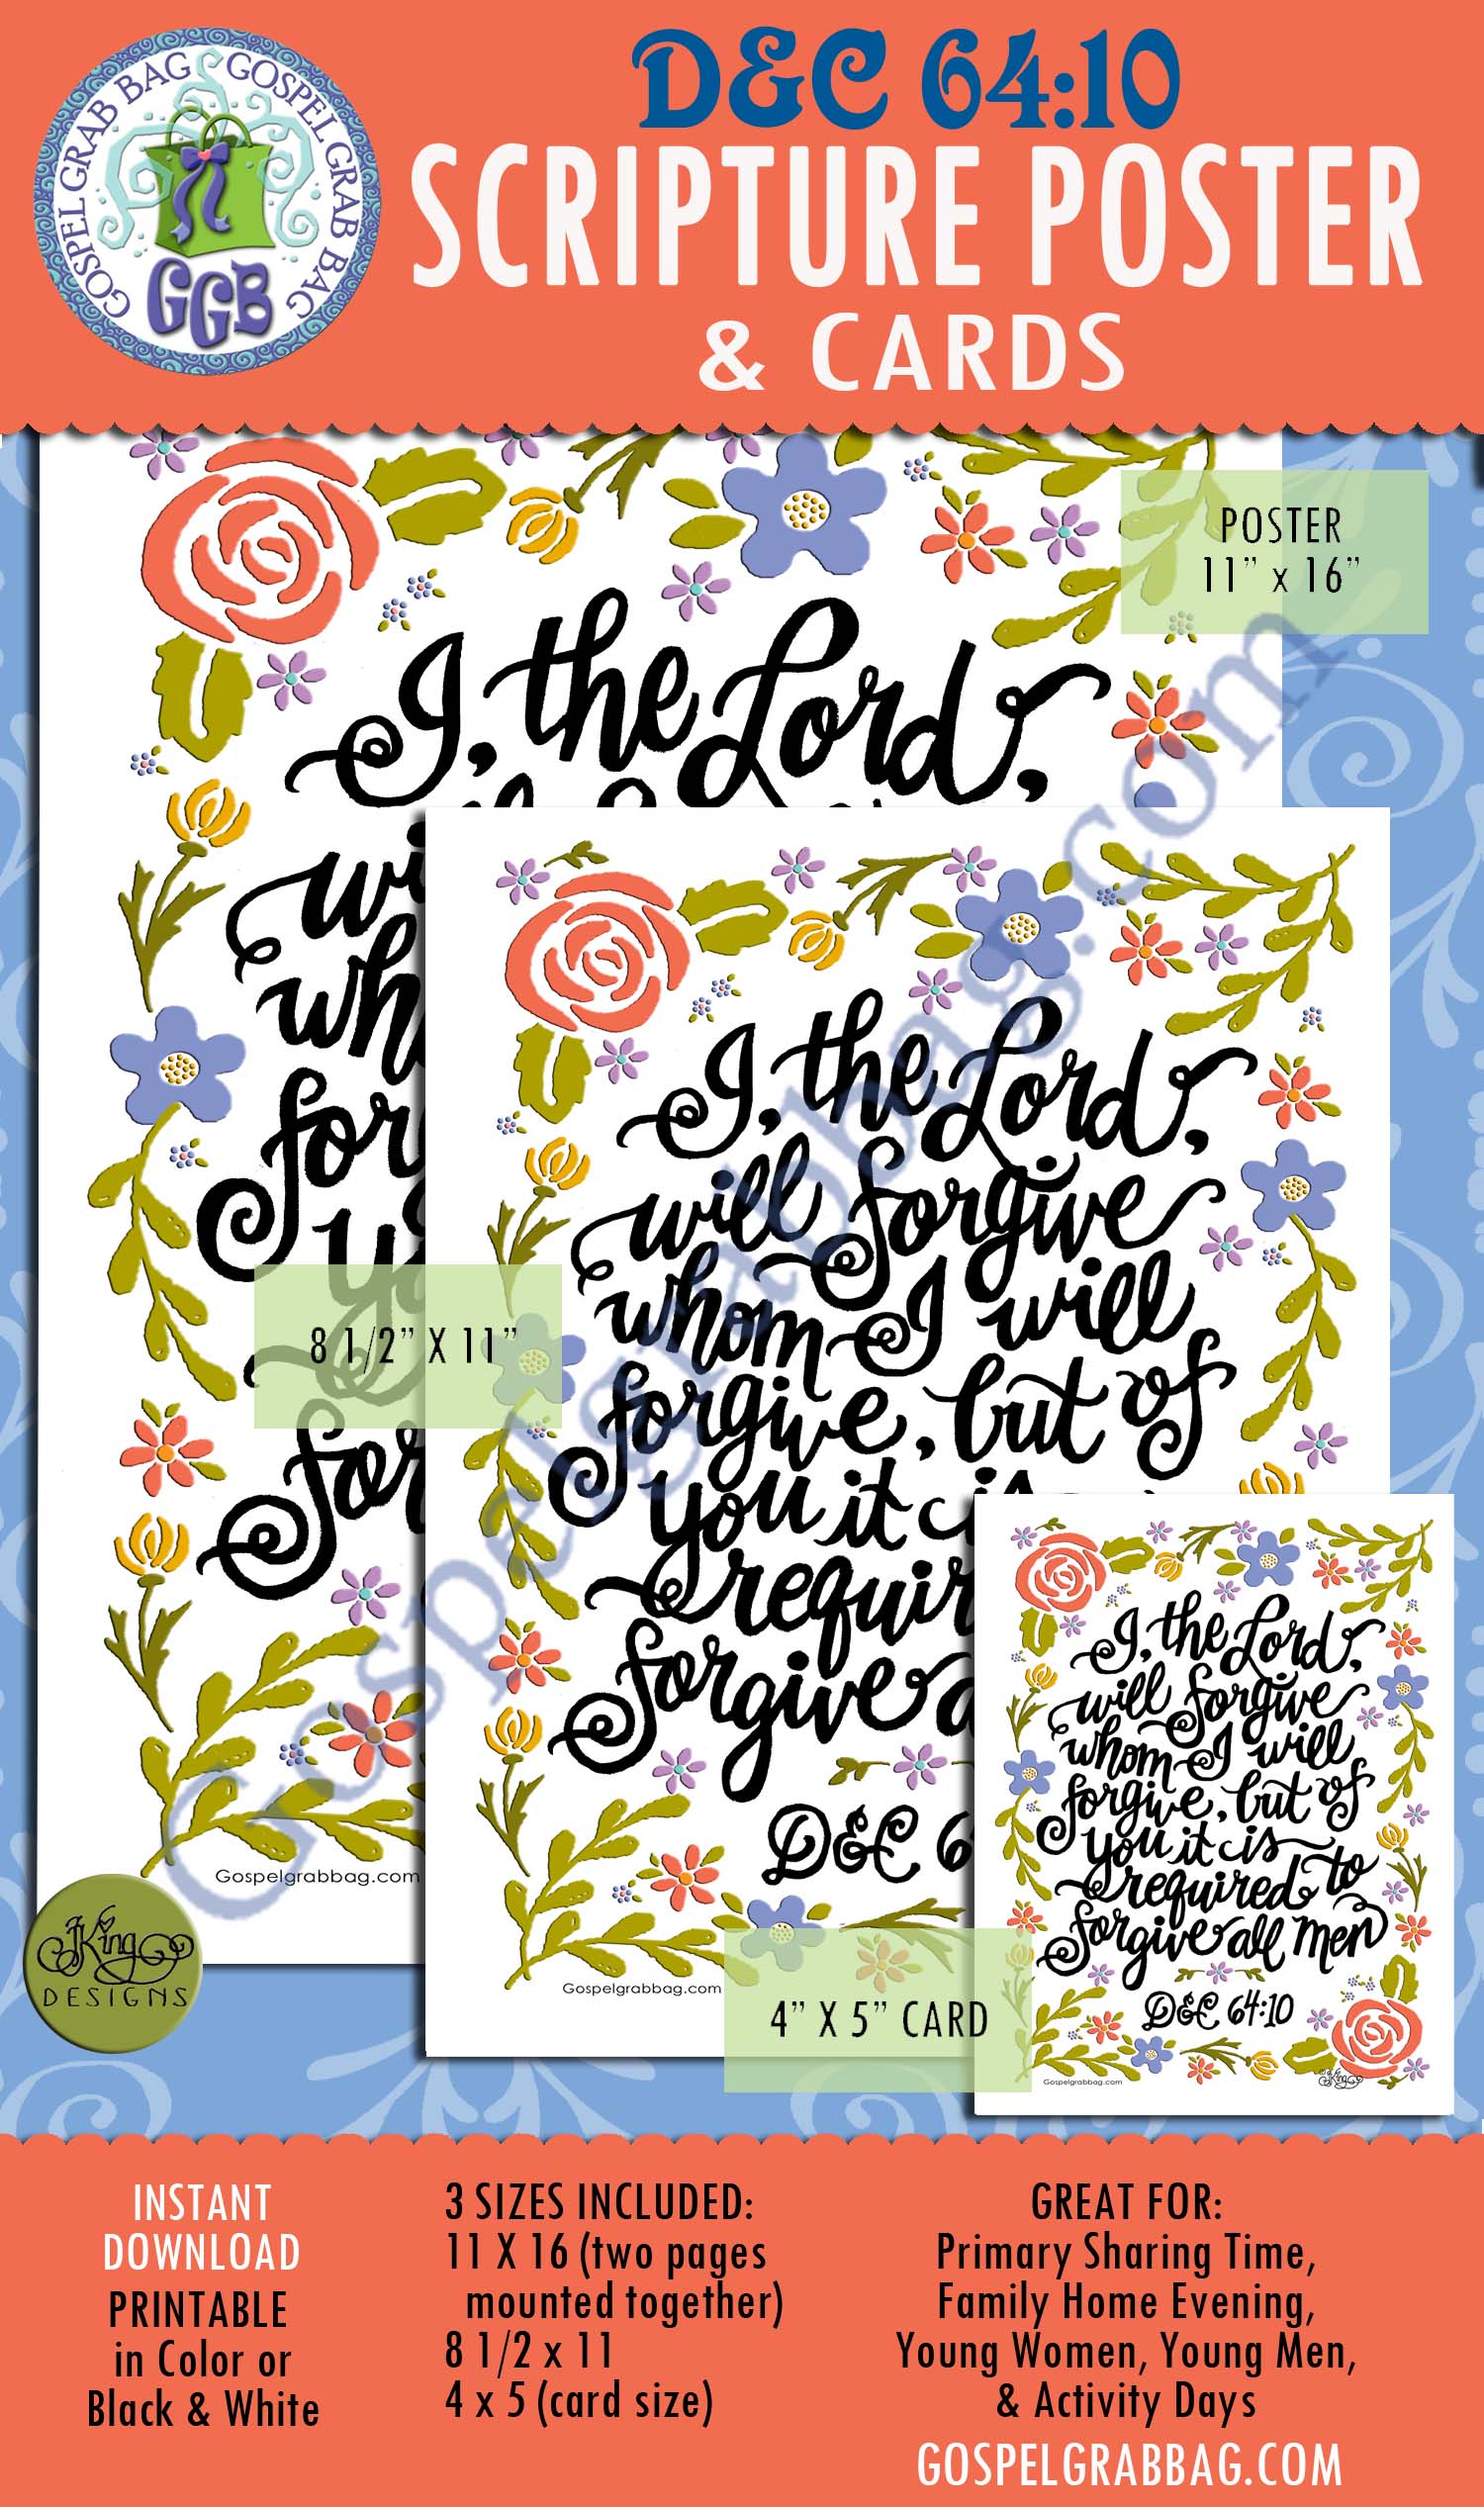 GOSPEL GRAB BAG GOSPEL GRAB BAG
GGB
D&C 64:10
SCRIPTURE POSTER
& CARDS
POSTER
11” x 16”
I, the Lord,
wi
wh
for
yo
for
Gospelgrabbag.com
8 1/2” X 11”
I, the Lord,
will forgive
whom I will
forgive, but of
you it is
requir
forgive a
D&C 6
Gospelgrabbag.com
4” X 5” CARD
I, the Lord,
will forgive
whom I will
forgive, but of
you it is
required to
forgive all men
D&C 64:10
Gospelgrabbag.com
JKing
Gospelgrabbag.com
JKing
DESIGNS
INSTANT
DOWNLOAD
PRINTABLE
in Color or
Black & White
3 SIZES INCLUDED:
11 X 16 (two pages
mounted together)
8 1/2 x 11
4 x 5 (card size)
GREAT FOR:
Primary Sharing Time,
Family Home Evening,
Young Women, Young Men,
& Activity Days
GOSPELGRABBAG.COM